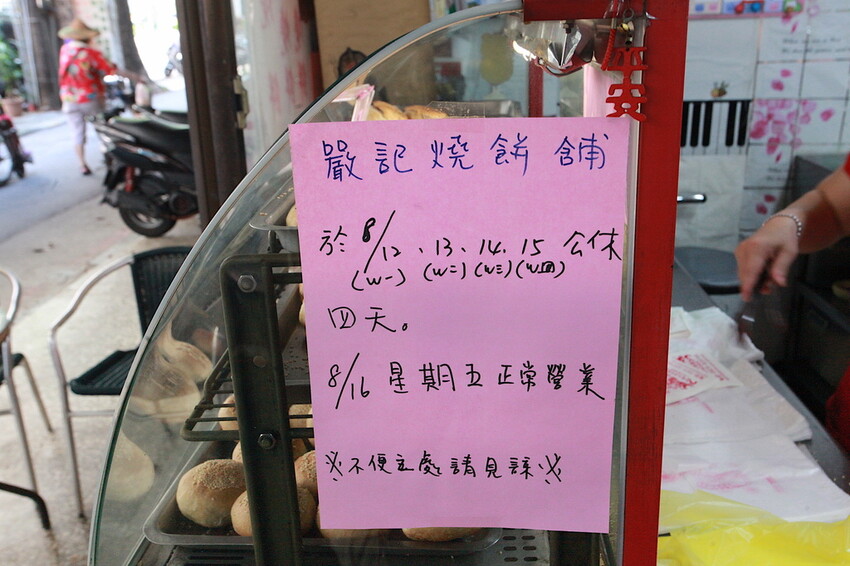 嚴記燒餅舖
於8/12、13、14、15公休
(W一)(W二)(W三)(W四)
四天。
8/16星期五正常營業
※不便之處請見諒※